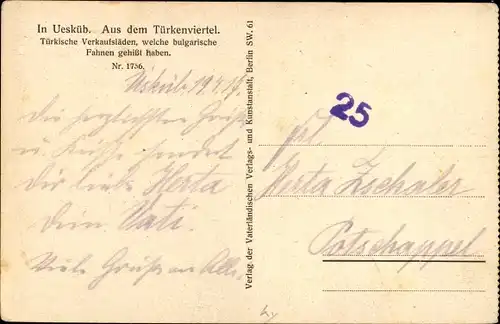 In Uesküb. Aus dem Türkenviertel.
Türkische Verkaufsläden, welche bulgarische
Fahnen gehißt haben.
Nr. 1756.
Usküb 19.
Die herzlichsten Grüße
u. Küsse sendet
Dir liebe Herta
Dein Vati.
Viele Grüße an Alle
Verlag der Vaterländischen Verlags- und Kunstanstalt, Berlin SW. 61
25
Frl.
Herta Zschaler
Potschappel